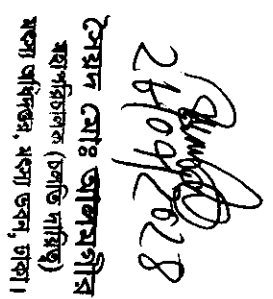 সৈয়দ মোঃ আলমগীর
মহাপরিচালক (চলতি দায়িত্ব)
মৎস্য অধিদপ্তর, মৎস্য ভবন, ঢাকা।